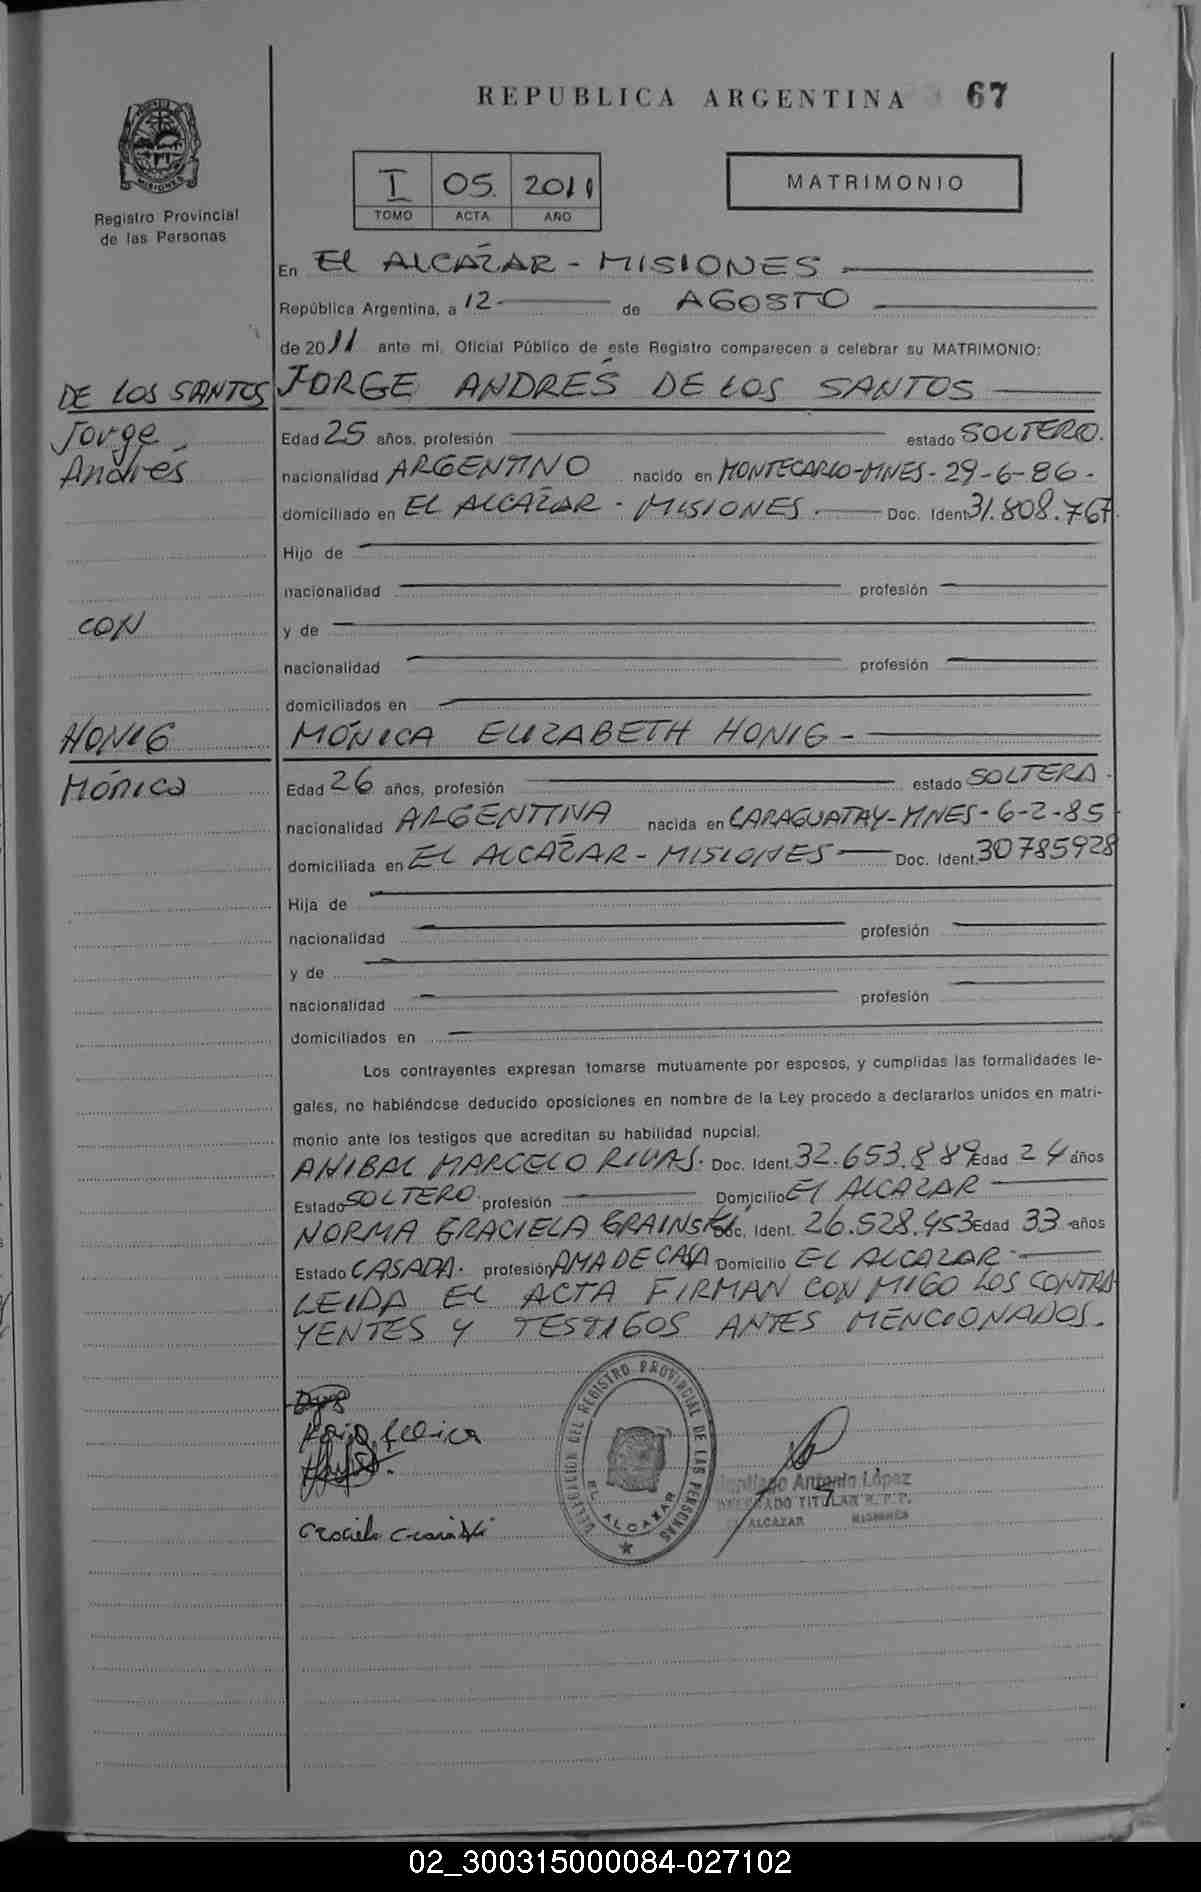 REPUBLICA ARGENTINA 67
MISIONES
Registro Provincial
de las Personas
I 05 2011
TOMO ACTA AÑO
MATRIMONIO
En EL ALCAZAR - MISIONES
República Argentina, a 12 de AGOSTO
de 2011 ante mí, Oficial Público de este Registro comparecen a celebrar su MATRIMONIO:
DE LOS SANTOS JORGE ANDRÉS DE LOS SANTOS
Jorge Edad 25 años, profesión estado SOLTERO.
Andrés nacionalidad ARGENTINO nacido en MONTECARLO-MNES-29-6-86-
domiciliado en EL ALCAZAR - MISIONES. Doc. Ident. 31.808.767.
Hijo de
nacionalidad profesión
CON y de
nacionalidad profesión
domiciliados en
HONIG MÓNICA ELIZABETH HONIG -
Mónica Edad 26 años, profesión estado SOLTERA.
nacionalidad ARGENTINA nacida en CARAGUATAY-MNES-6-2-85
domiciliada en EL ALCAZAR - MISIONES Doc. Ident. 30785928
Hija de
nacionalidad profesión
y de
nacionalidad profesión
domiciliados en
Los contrayentes expresan tomarse mutuamente por esposos, y cumplidas las formalidades le-
gales, no habiéndose deducido oposiciones en nombre de la Ley procedo a declararlos unidos en matri-
monio ante los testigos que acreditan su habilidad nupcial.
ANIBAL MARCELO RIVAS. Doc. Ident. 32.653.889 Edad 24 años
Estado SOLTERO. profesión Domicilio El ALCAZAR
NORMA GRACIELA GRAINSKI, Doc. Ident. 26.528.453 Edad 33 años
Estado CASADA. profesión AMA DE CASA Domicilio EL ALCAZAR
LEIDA EL ACTA FIRMAN CON MIGO LOS CONTRA
YENTES Y TESTIGOS ANTES MENCIONADOS.
DELEGACION DEL REGISTRO PROVINCIAL DE LAS PERSONAS
EL ALCAZAR
Santiago Antonio López
DELEGADO TITULAR R. P. P.
EL ALCAZAR MISIONES
02_300315000084-027102